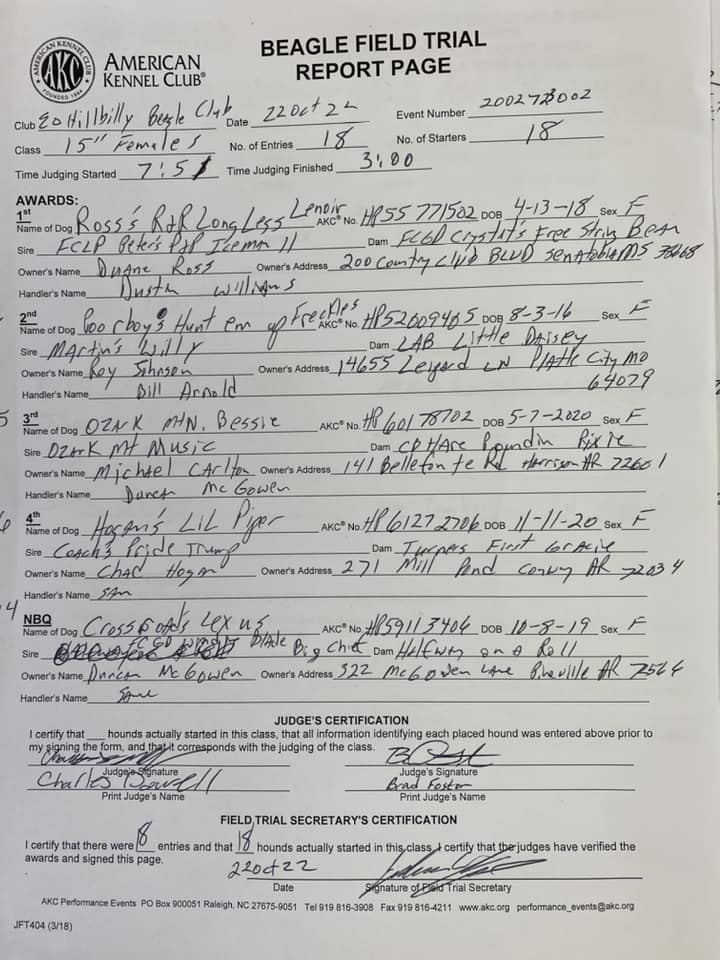 AMERICAN KENNEL CLUB
AKC
FOUNDED 1884
AMERICAN
KENNEL CLUB®
BEAGLE FIELD TRIAL
REPORT PAGE
Club Hillbilly Beagle Club Date 22 Oct 22 Event Number
Class 15" Females No. of Entries 18 No. of Starters 18
Time Judging Started 7:51 Time Judging Finished 3:00
AWARDS:
1st
Name of Dog Ross's R&R Long Less Lenoir AKC® No. HP55771502 DOB 4-13-18 Sex F
Sire FCLP Peter's P&P Iceman II Dam FCGD Crystal's Free Strip Bean
Owner's Name Duane Ross Owner's Address 200 Country Club BLVD Senatobia MS 38668
Handler's Name Dustin Williams
2nd
Name of Dog Poorboy's Hunt em up Freckles AKC® No. HP52609405 DOB 8-3-16 Sex F
Sire Martin's Willy Dam LAB Little Daisey
Owner's Name Roy Johnson Owner's Address 14655 LN Platte City MO
64079
Handler's Name Bill Arnold
3rd
Name of Dog OZARK MTN. Bessie AKC® No. HP60178702 DOB 5-7-2020 Sex F
Sire Ozark Mt Music Dam CD Hare Poundin Pixie
Owner's Name Michael Carlton Owner's Address 141 Bellefonte Rd Harrison AR 72601
Handler's Name Duncan McGowen
4th
Name of Dog Hogan's LIL Piper AKC® No. HP61272706 DOB 11-11-20 Sex F
Sire Coach's Pride Trump Dam Turners First Gracie
Owner's Name Chad Hogan Owner's Address 271 Mill Pond Conway AR 72034
Handler's Name
NBQ
Name of Dog Crossroads Lexus AKC® No. HP59113406 DOB 10-8-19 Sex F
Sire Blade Big Chief Dam Halfway on a Roll
Owner's Name Duncan McGowen Owner's Address 322 McGowen Lane AR
Handler's Name Same
JUDGE'S CERTIFICATION
I certify that ___ hounds actually started in this class, that all information identifying each placed hound was entered above prior to
my signing the form, and that it corresponds with the judging of the class.
Judge's Signature Judge's Signature
Charles Brad Foster
Print Judge's Name Print Judge's Name
FIELD TRIAL SECRETARY'S CERTIFICATION
I certify that there were 8 entries and that 18 hounds actually started in this class. I certify that the judges have verified the
awards and signed this page.
22 Oct 22
Date Signature of Field Trial Secretary
AKC Performance Events PO Box 900051 Raleigh, NC 27675-9051 Tel 919 816-3908 Fax 919 816-4211 www.akc.org performance_events@akc.org
JFT404 (3/18)